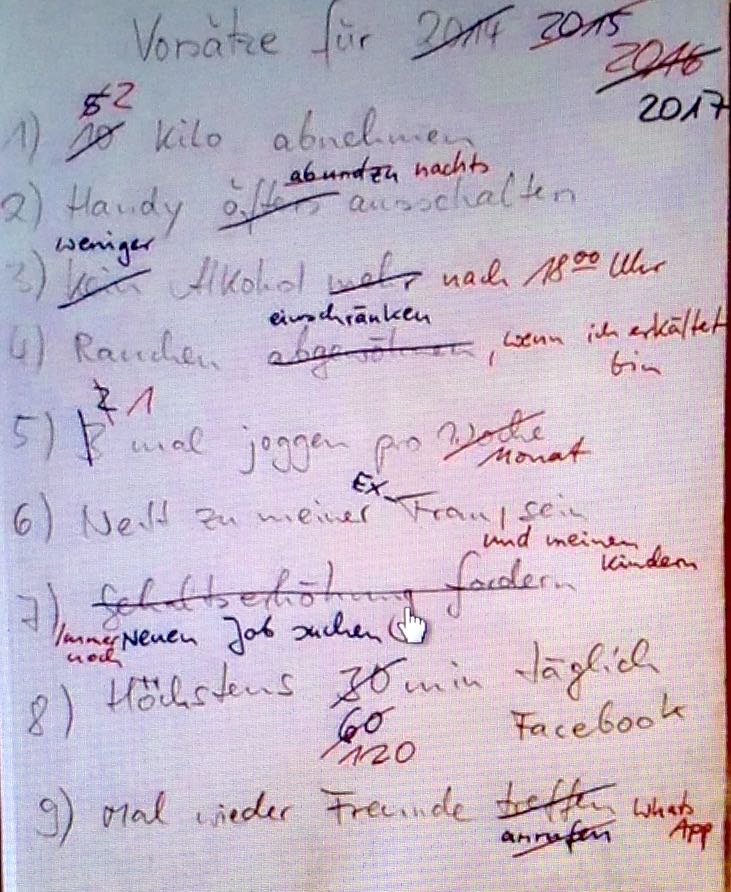 Vorsätze für 2014 2015
2016
2017
5 2
1) 10 Kilo abnehmen
ab und zu nachts
2) Handy öfters ausschalten
weniger
3) Kein Alkohol mehr nach 18 00 Uhr
einschränken
4) Rauchen abgewöhnen, wenn ich erkältet
bin
2 1
5) 3 mal joggen pro Woche
Monat
Ex-
6) Nett zu meiner Frau, sein
und meinen
Kindern
7) Gehaltserhöhung fordern
Immer noch Neuen Job suchen
8) Höchstens 30 min täglich
60 Facebook
120
9) Mal wieder Freunde treffen Whats
anrufen App